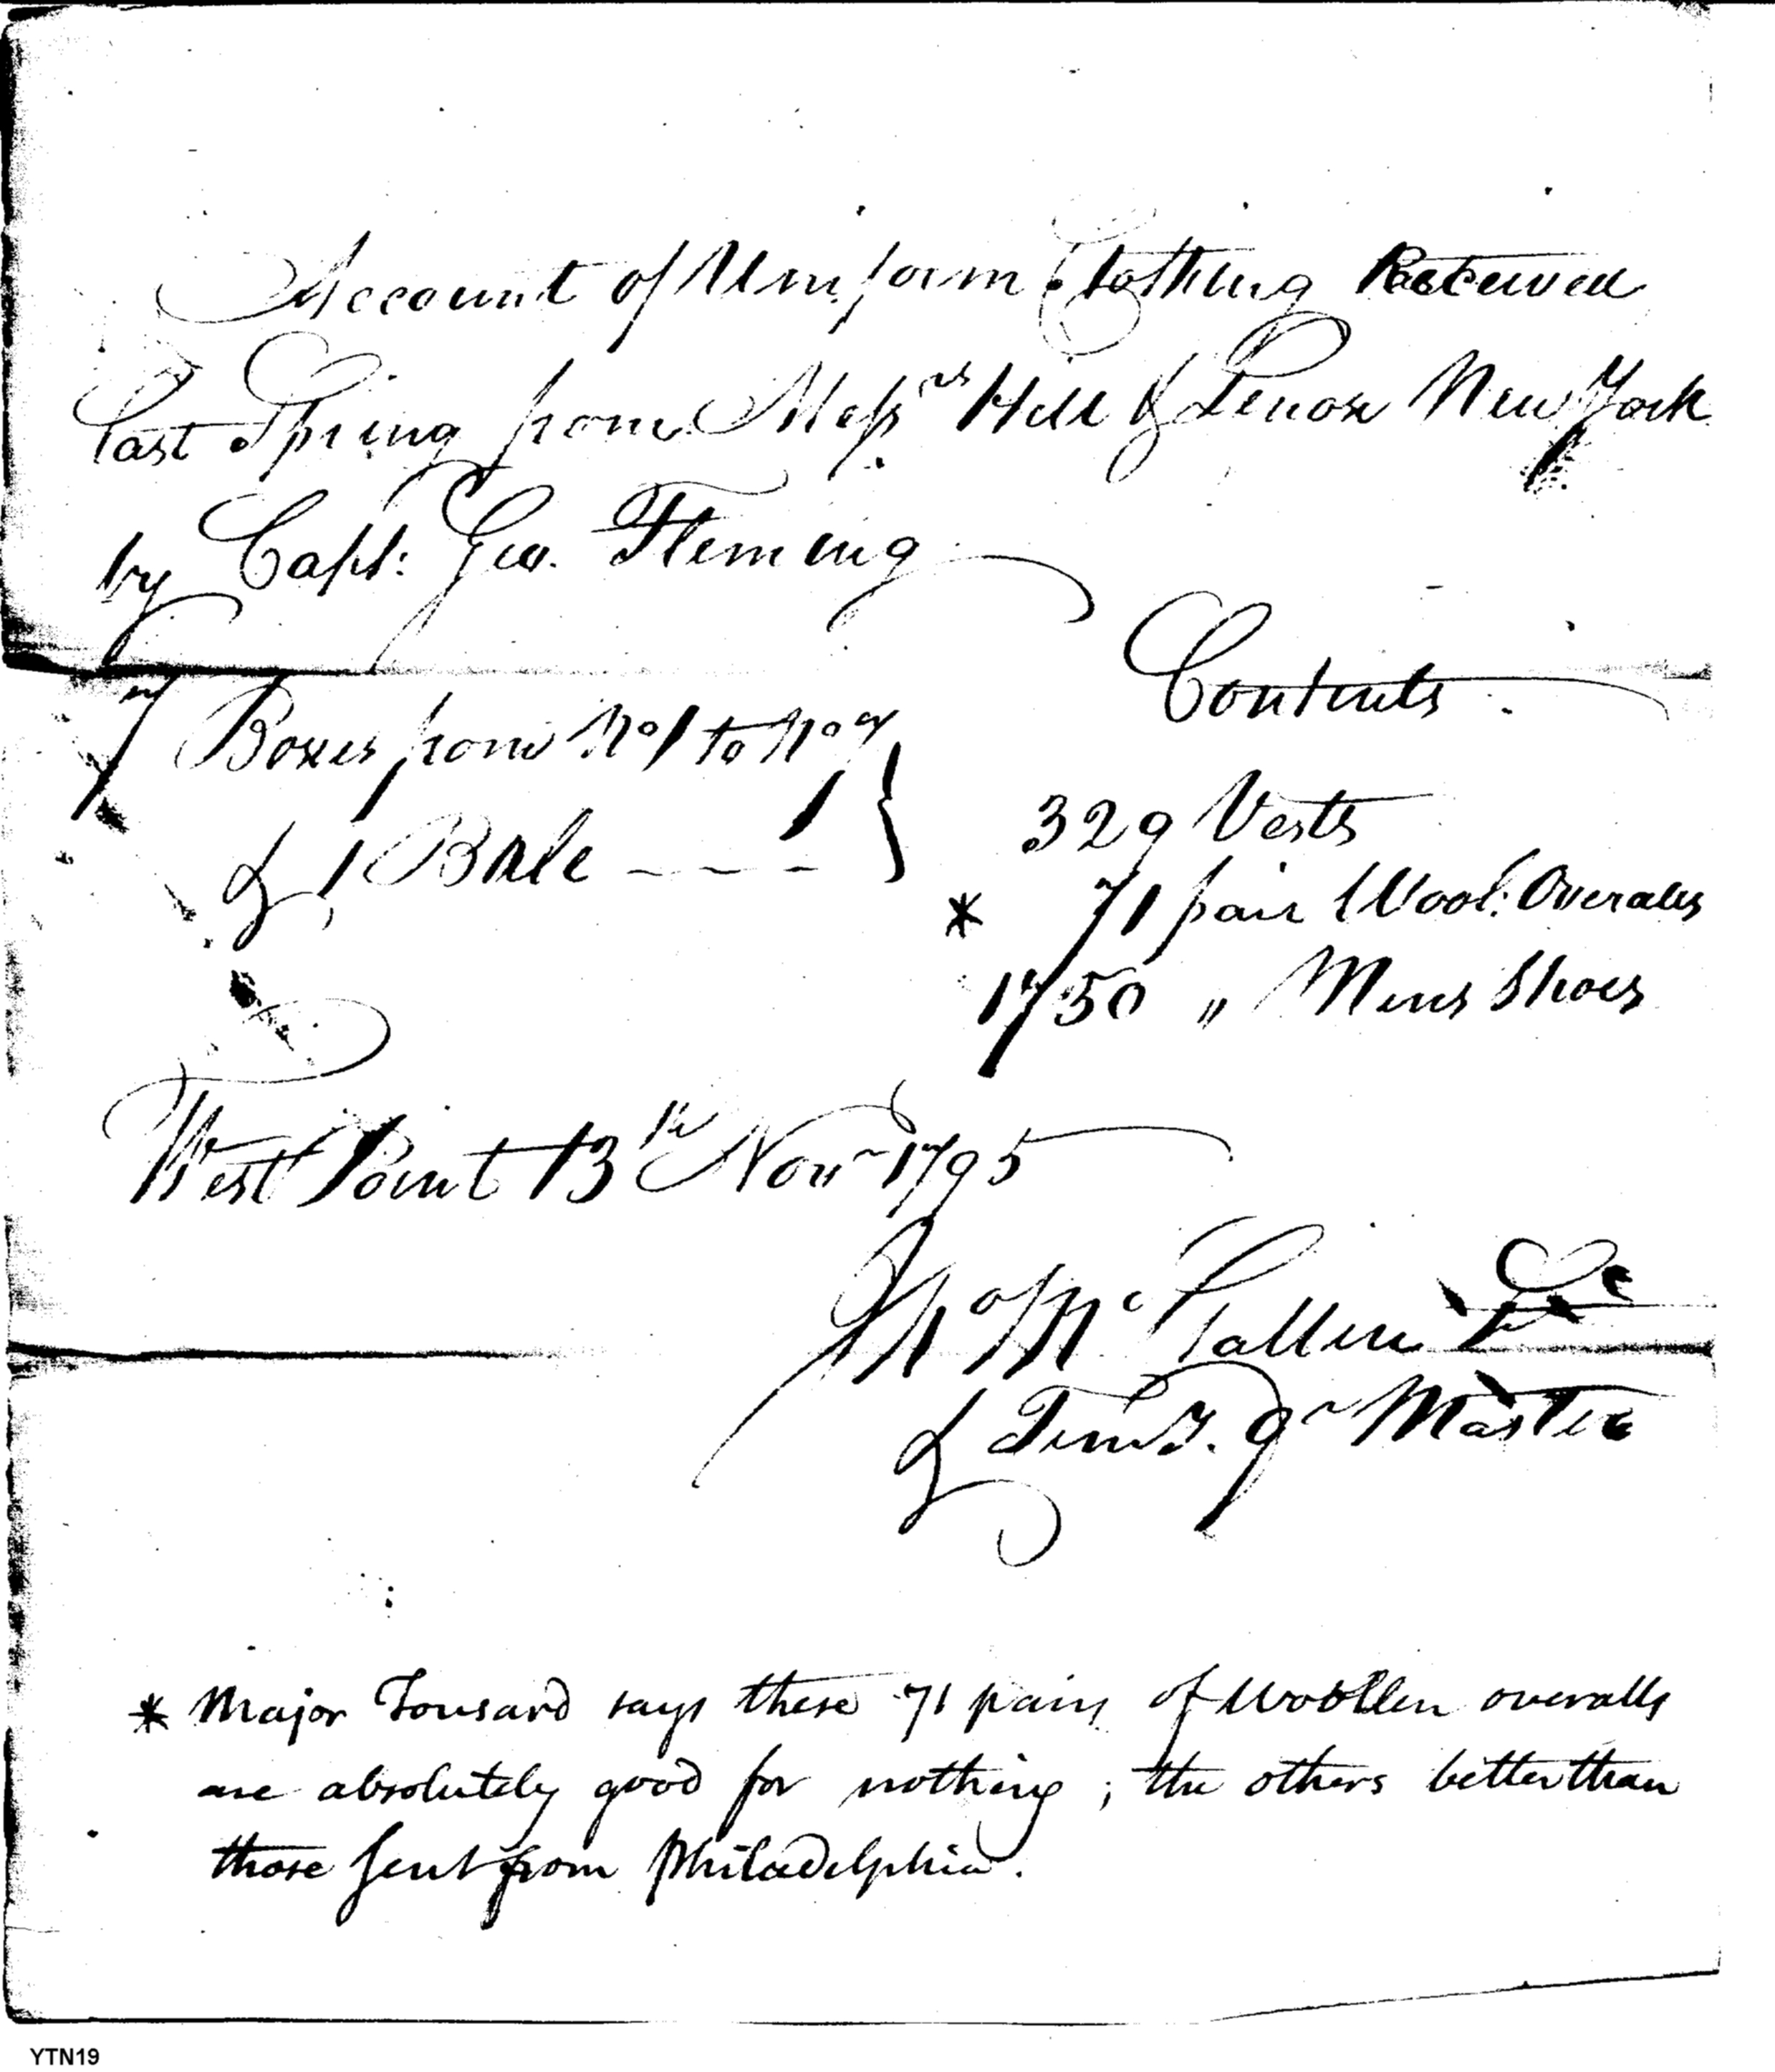 Account of Uniform Clothing Received
last Spring from Messrs Hill & Lenox New York
by Capt: Geo. Fleming
Contents.
7 Boxes from No 1 to No 7
& 1 Bale - - - -
329 Vests
* 71 pair Wool: Overalls
1750 " Mens Shoes
West Point 13th Novr 1795
Jno McCallen
& Temy. Qr Master
* Major Tousard says these 71 pairs of Woollen overalls
are absolutely good for nothing; the others better than
those sent from Philadelphia.
YTN19